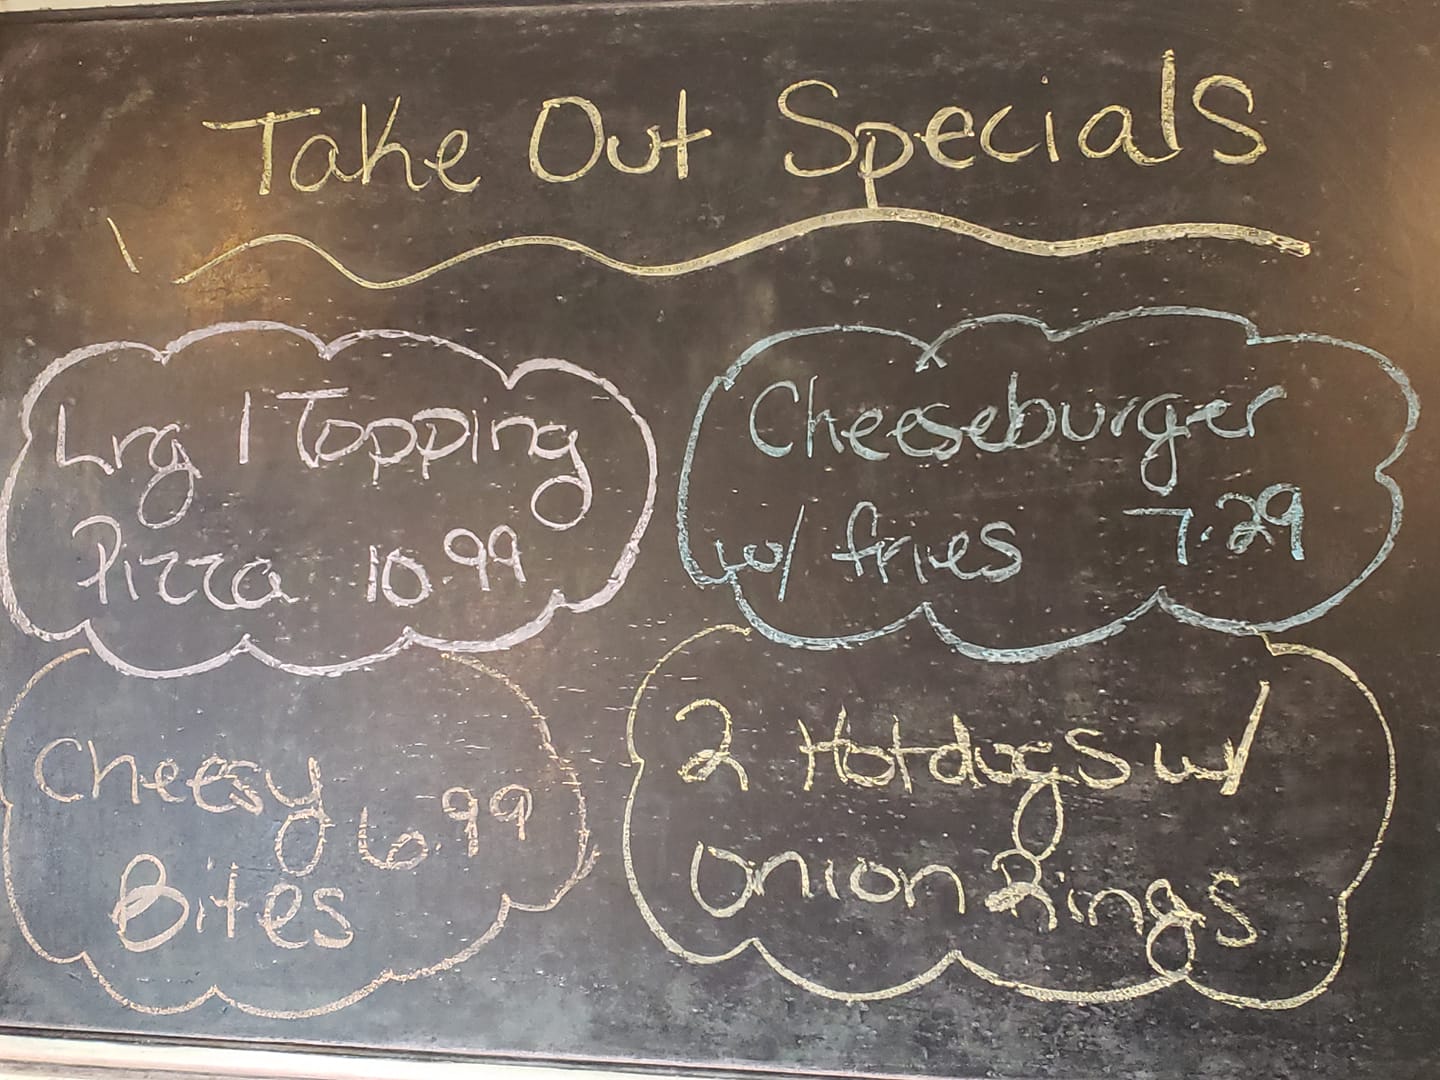 Take Out Specials
Lrg 1 Topping
Pizza 10.99
Cheeseburger
w/ fries 7.29
Cheesy 6.99
Bites
2 Hotdogs w/
Onion Rings